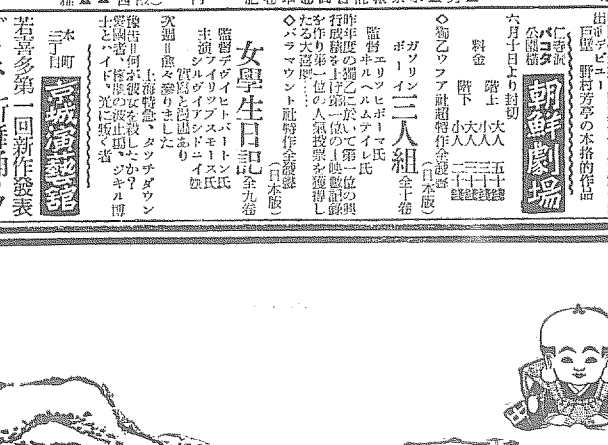 出演デビュー
野村芳亭の本格的作品
仁寺洞
パコタ
公園横
朝鮮劇場
六月十日より封切
料金
階上 大人 五十錢
小人 三十錢
階下 大人 三十錢
小人 二十錢
◇獨乙ウフア社超特作全發聲
(日本版)
ガソリン
ボーイ
三人組 全十卷
監督 エリツヒポーマ氏
キルヘルムテイレ氏
昨年度の獨乙に於いて第一位の興
行成績を上げ第一位の上映數記録
を作り第一位の人氣投票を獲得し
たる大喜劇……
◇パラマウント社特作全發聲
(日本版)
女學生日記 全九卷
監督 デヴイヒトバートン氏
主演 フイリツプスモース氏
シルヴイアシドニイ孃
實寫と漫画あり
次週=愈々參りました
上海特急、タツチダウン
豫告=何が彼女を殺したか?
愛國者、極樂の波止塲、ジキル博
士とハイド、光に叛く者
本町
三丁目
京城演藝舘
若喜多第一回新作發表